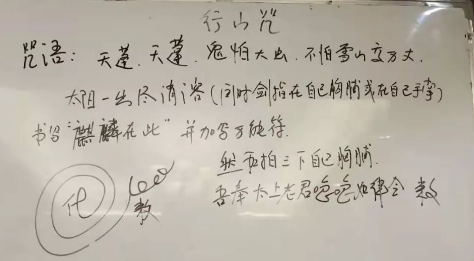 行山咒
咒语：天蓬、天蓬、鬼怕大虫、不怕雪山交万丈、
太阳一出尽消溶（同时剑指在自己胸脯或在自己手掌）
书写“麒麟在此”并加写万能符.
然后拍三下自己胸脯.
吾奉太上老君急急如律令 敕
化
敕